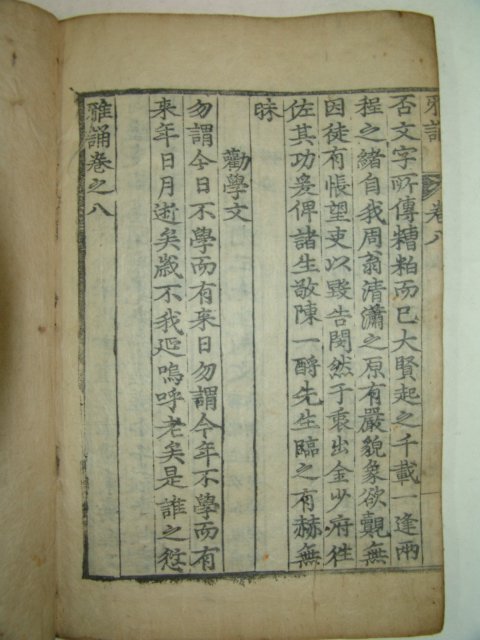 卷八
否文字所傳糟粕而已大賢起之千載一逢兩
程之緒自我周翁清瀟之原有嚴貌象欲覿無
因徒有悵望吏以毀告閔然于衷出金少府徃
佐其功爰俾諸生敬陳一酹先生臨之有赫無
昧
勸學文
勿謂今日不學而有来日勿謂今年不學而有
来年日月逝矣歲不我延嗚呼老矣是誰之愆
雅誦卷之八